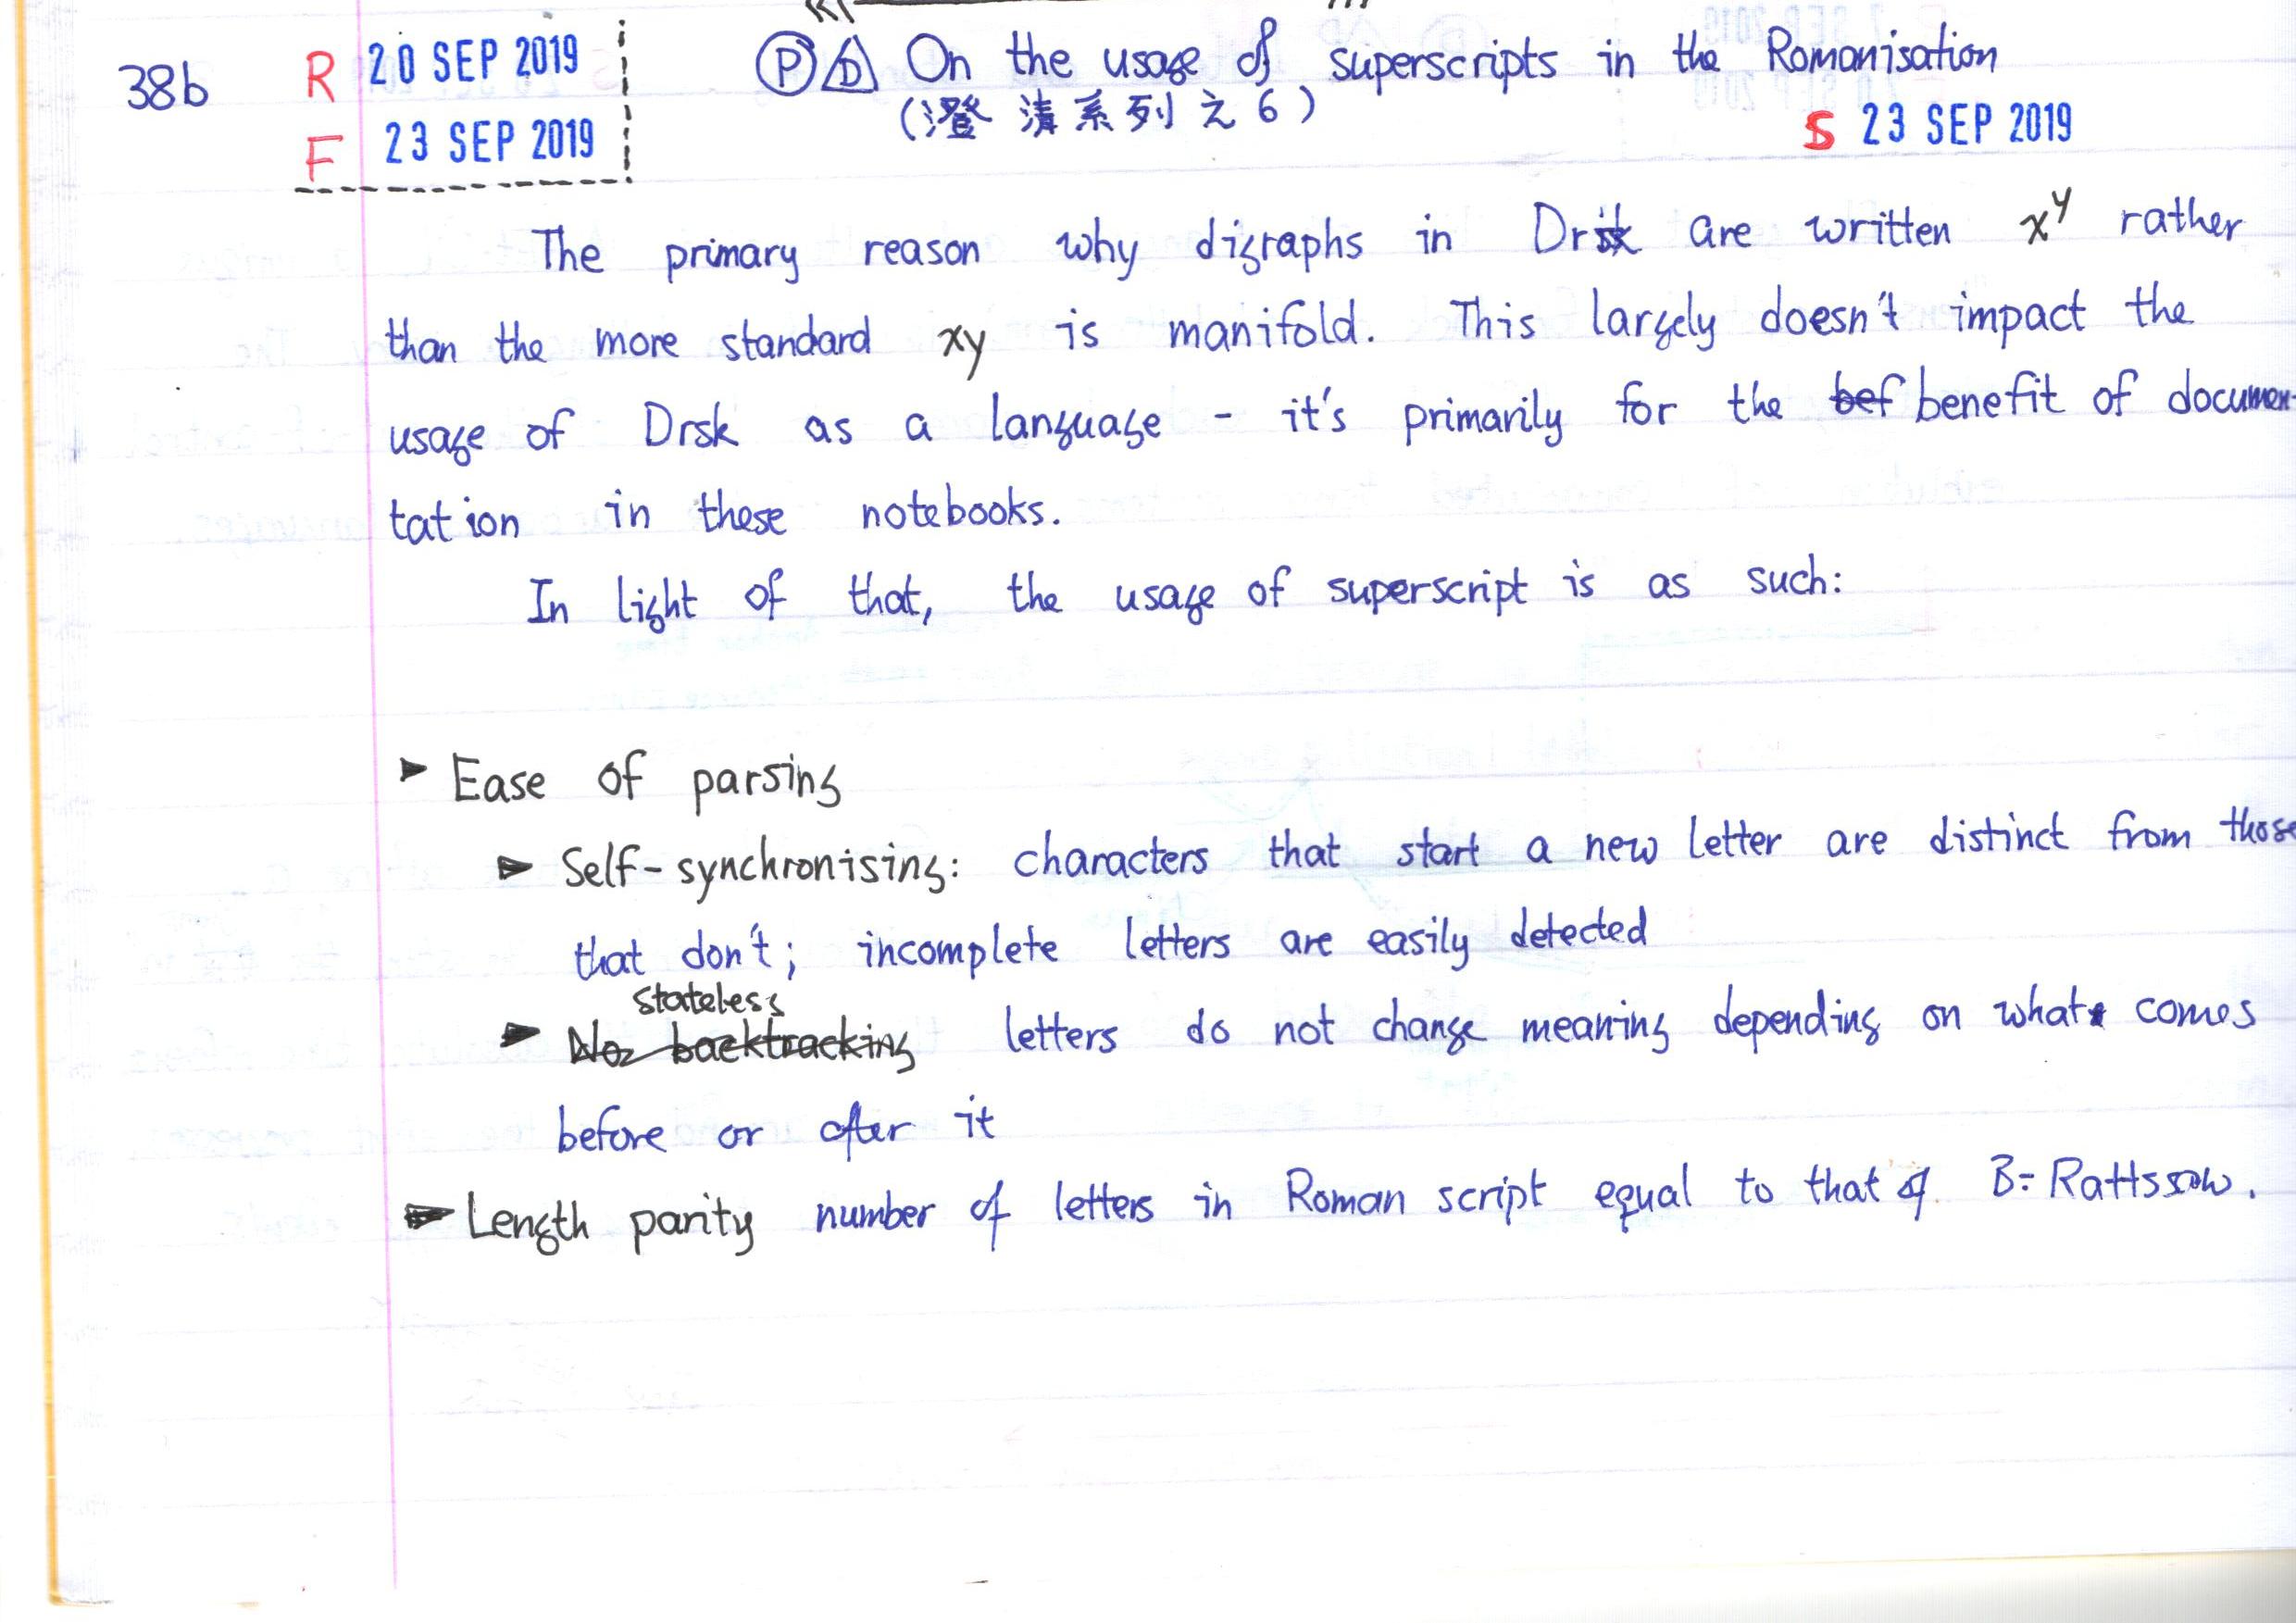 38b R 20 SEP 2019 Ⓟ D On the usage of superscripts in the Romanisation
F 23 SEP 2019 (澄清系列之6) S 23 SEP 2019
The primary reason why digraphs in Drsk are written xʸ rather
than the more standard xy is manifold. This largely doesn't impact the
usage of Drsk as a language - it's primarily for the bef benefit of documen-
tation in these notebooks.
In light of that, the usage of superscript is as such:
► Ease of parsing
► Self-synchronising: characters that start a new letter are distinct from those
that don't; incomplete letters are easily detected
stateless
► No backtracking letters do not change meaning depending on what comes
before or after it
► Length parity number of letters in Roman script equal to that of